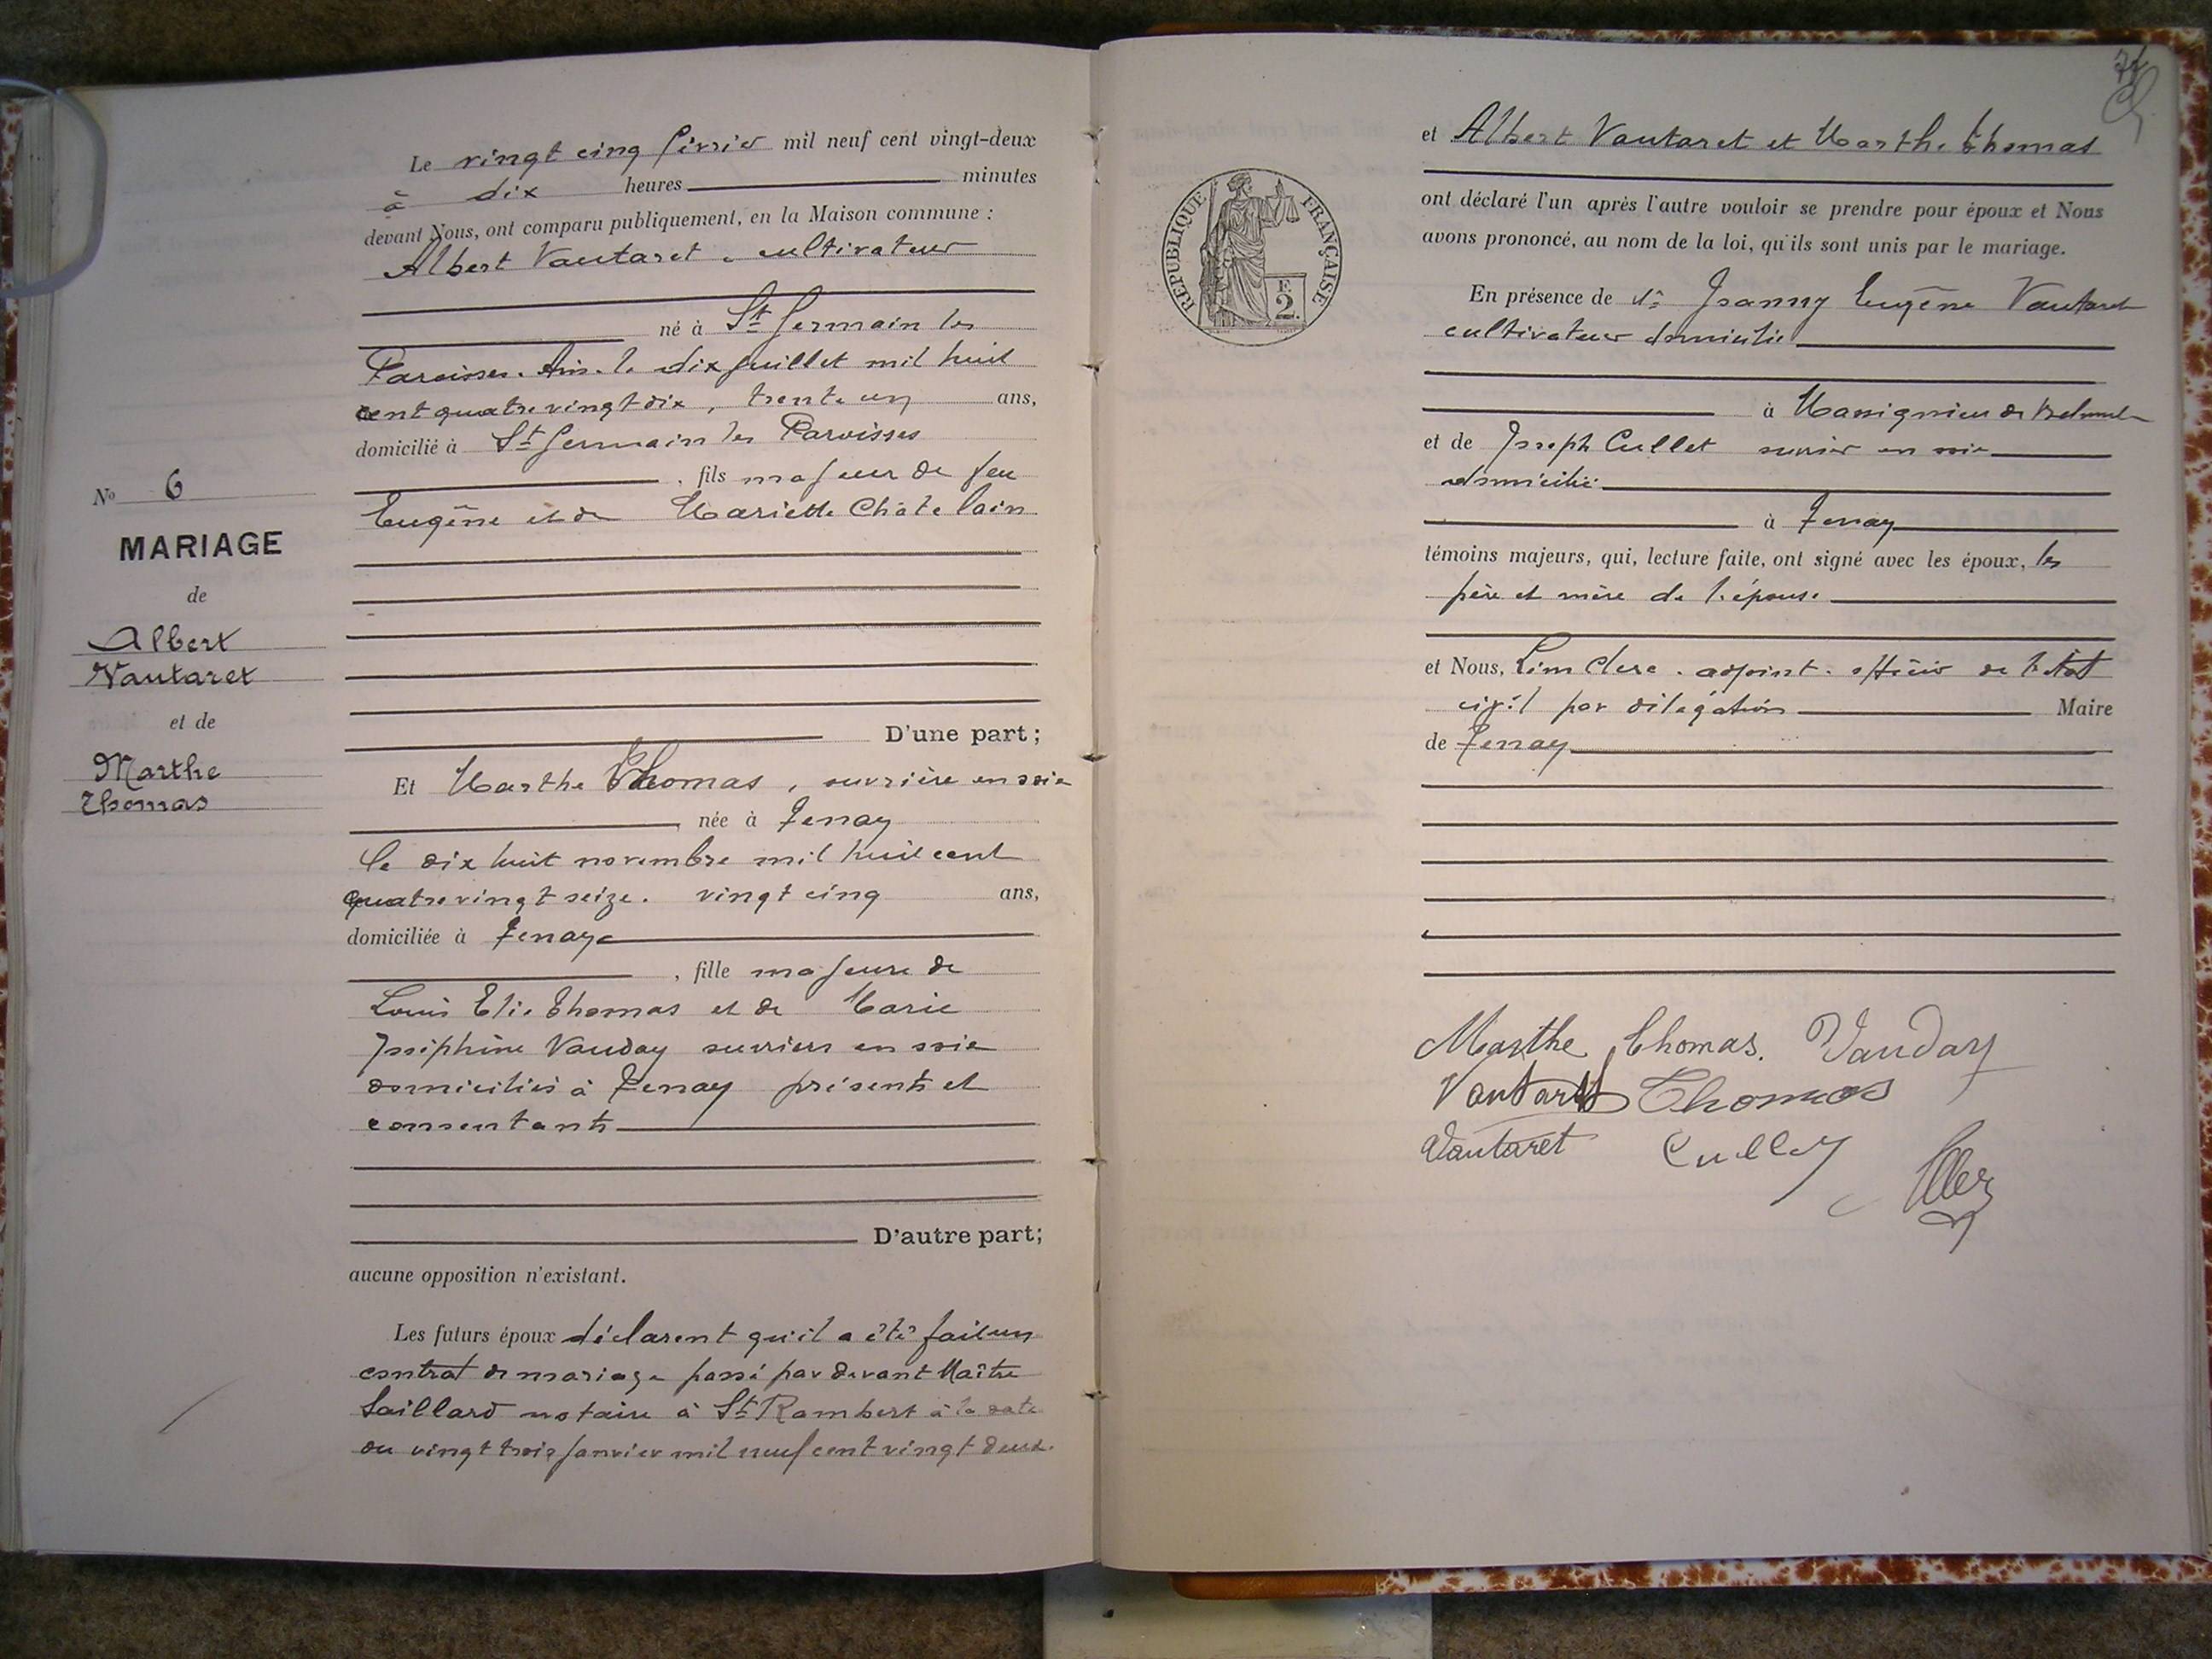 Le vingt cinq février mil neuf cent vingt-deux
à dix heures minutes
devant Nous, ont comparu publiquement, en la Maison commune :
Albert Vautaret, cultivateur
né à St Germain les
Paroisses. Ain. le dix juillet mil huit
cent quatre vingt dix, trente un ans,
domicilié à St Germain les Paroisses
, fils majeur de feu
Eugène et de Mariette Châtelain
D'une part ;
No 6
MARIAGE
de
Albert
Vautaret
et de
Marthe
Thomas
Et Marthe Thomas, ouvrière en soie
, née à Tenay
le dix huit novembre mil huit cent
quatre vingt seize. vingt cinq ans,
domiciliée à Tenay
, fille majeure de
Louis Elie Thomas et de Marie
Joséphine Vauday ouvriers en soie
domiciliés à Tenay présents et
consentants
D'autre part;
aucune opposition n'existant.
Les futurs époux déclarent qu'il a été fait un
contrat de mariage passé par devant Maître
Saillard notaire à St Rambert à la date
du vingt trois janvier mil neuf cent vingt deux.
et Albert Vautaret et Marthe Thomas
RÉPUBLIQUE FRANÇAISE
F.
2.
ont déclaré l'un après l'autre vouloir se prendre pour époux et Nous
avons prononcé, au nom de la loi, qu'ils sont unis par le mariage.
En présence de Eugène Vautaret
cultivateur domicilié
à Massignieu de
et de Joseph Cullet ouvrier en soie
domicilié
à Tenay
témoins majeurs, qui, lecture faite, ont signé avec les époux, les
père et mère de l'épouse
et Nous, Clerc. adjoint. officier de l'état
civil par délégation Maire
de Tenay
Marthe Thomas. Vauday
Vautaret Thomas
Vautaret Cullet